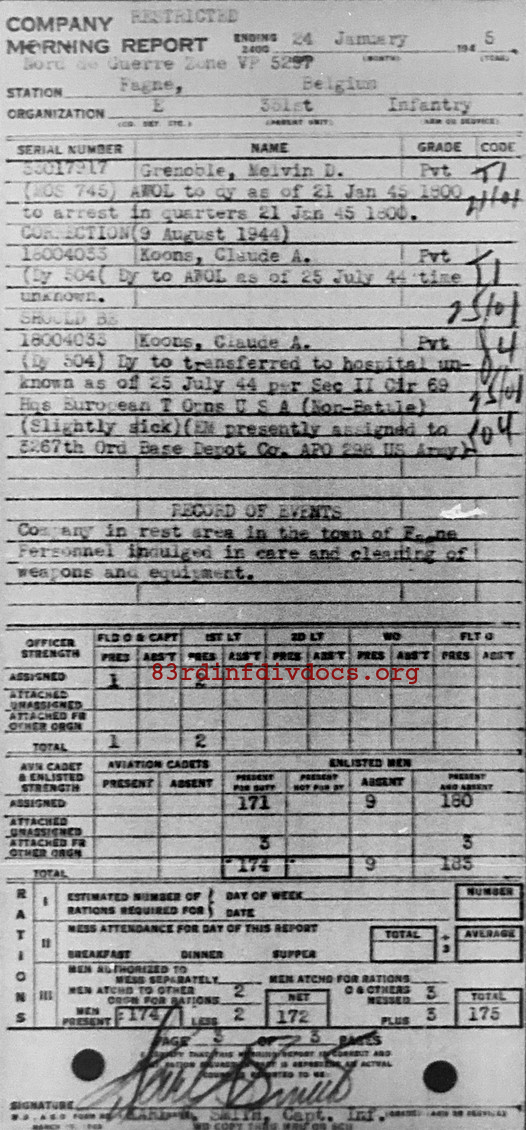 RESTRICTED
COMPANY
MORNING REPORT ENDING 2400 24 January 194 5
(MONTH) (YEAR)
Nord de Guerre Zone VP 5297
STATION Fagne, Belgium
ORGANIZATION E 331st Infantry
(CO. DET. ETC.) (PARENT UNIT) (ARM OR SERVICE)
SERIAL NUMBER NAME GRADE CODE
Grenoble, Melvin D. Pvt
(MOS 745) AWOL to dy as of 21 Jan 45 1800
to arrest in quarters 21 Jan 45 1800.
CORRECTION(9 August 1944)
18004033 Koons, Claude A. Pvt
(Dy 504( Dy to AWOL as of 25 July 44 time
unknown.
SHOULD BE
18004033 Koons, Claude A. Pvt
(Dy 504) Dy to transferred to hospital un-
known as of 25 July 44 per Sec II Cir 69
Hqs European T Opns U S A (Non-Battle)
(Slightly sick)(EM presently assigned to
3267th Ord Base Depot Co. APO 298 US Army)
RECORD OF EVENTS
Company in rest area in the town of Fagne
Personnel indulged in care and cleaning of
weapons and equipment.
OFFICER STRENGTH FLD O & CAPT 1ST LT 2D LT WO FLT O
PRES ABS'T PRES ABS'T PRES ABS'T PRES ABS'T PRES ABS'T
ASSIGNED 1 2
83rdinfdivdocs.org
ATTACHED UNASSIGNED
ATTACHED FR OTHER ORGN
TOTAL 1 2
AVN CADET & ENLISTED STRENGTH AVIATION CADETS ENLISTED MEN
PRESENT ABSENT PRESENT FOR DUTY PRESENT NOT FOR DY ABSENT PRESENT AND ABSENT
ASSIGNED 171 9 180
ATTACHED UNASSIGNED
ATTACHED FR OTHER ORGN 3 3
TOTAL 174 9 183
RATIONS
I ESTIMATED NUMBER OF RATIONS REQUIRED FOR DAY OF WEEK DATE NUMBER
II MESS ATTENDANCE FOR DAY OF THIS REPORT TOTAL ÷ 3 AVERAGE
BREAKFAST DINNER SUPPER
III MEN AUTHORIZED TO MESS SEPARATELY MEN ATCHD FOR RATIONS
MEN ATCHD TO OTHER ORGN FOR RATIONS 2 NET O & OTHERS MESSED 3 TOTAL
MEN PRESENT 174 LESS 2 172 PLUS 3 175
PAGE 3 OF 3 PAGES
I CERTIFY THAT THIS MORNING REPORT IS CORRECT AND
SIGNATURE
SMITH, Capt. Inf.